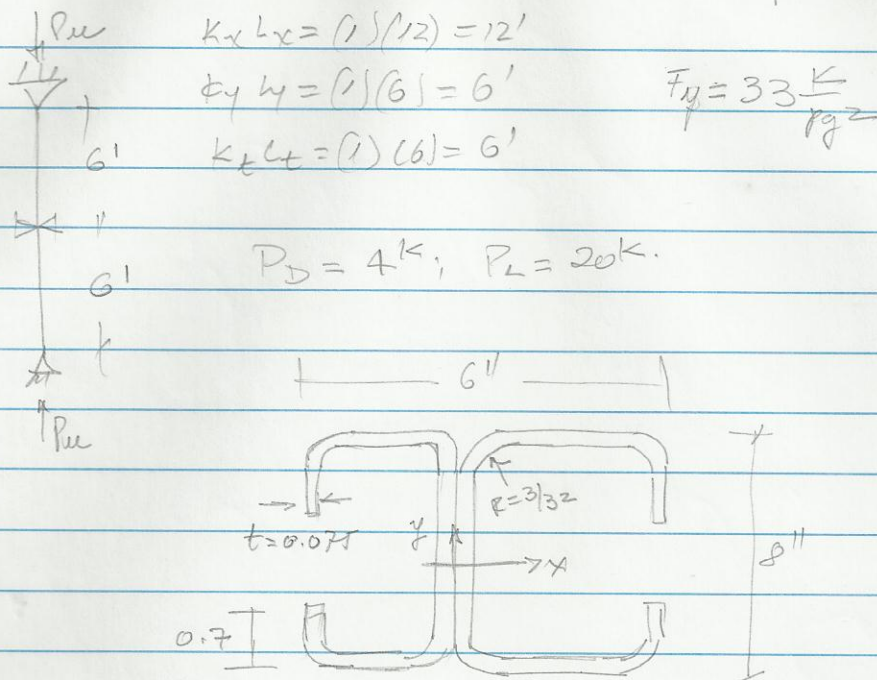 Pu
KxLx = (1)(12) = 12'
KyLy = (1)(6) = 6'
Fy = 33 K/pg²
6'
KtLt = (1)(6) = 6'
PD = 4K; PL = 20K.
6'
6"
Pu
R=3/32
t=0.075
y
x
8"
0.7